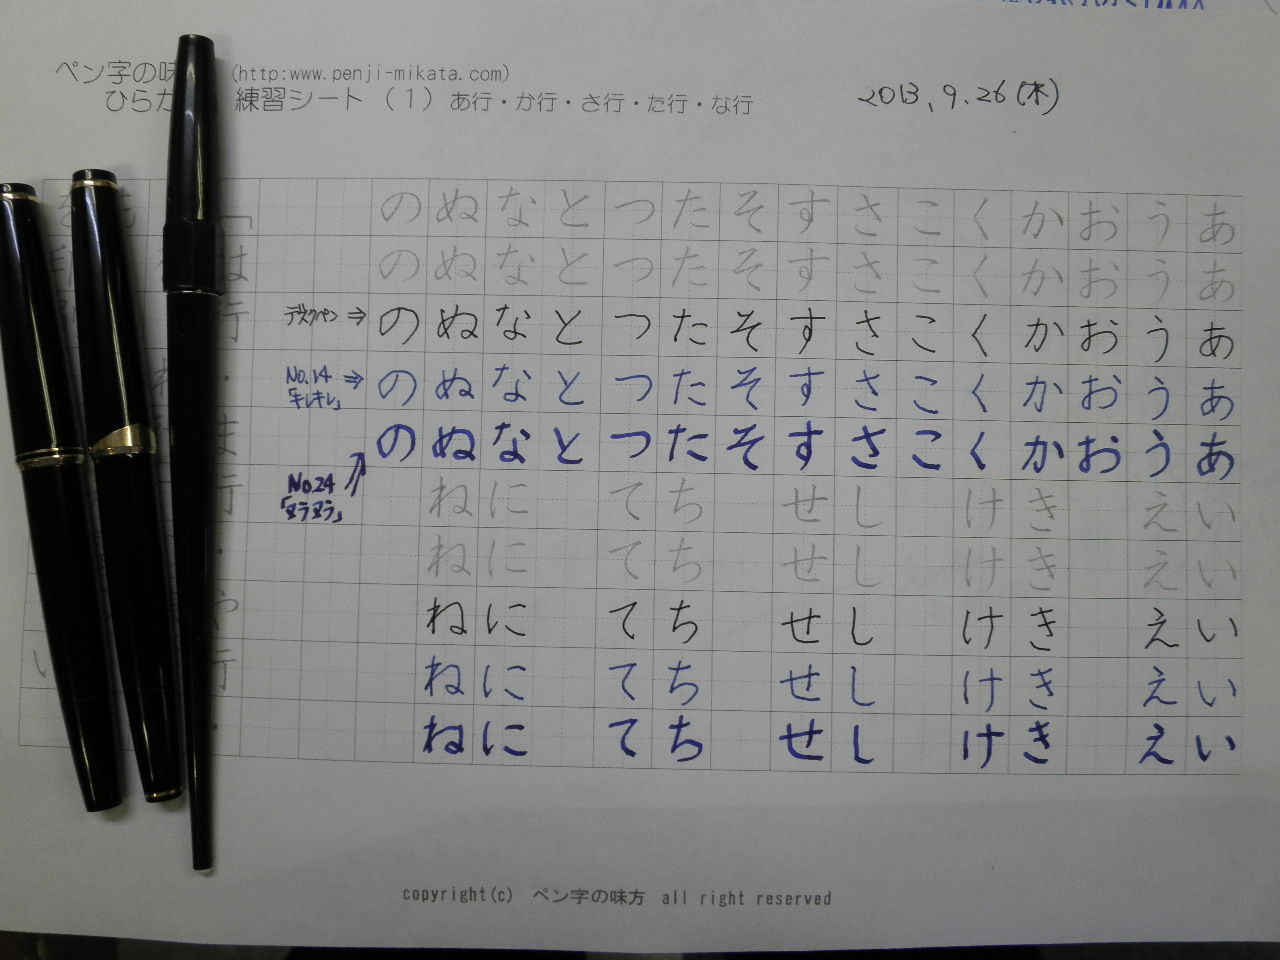 ペン字の味 (http:www.penji-mikata.com)
ひらが 練習シート（１）あ行・か行・さ行・た行・な行
2013.9.26(木)
の ぬ な と つ た そ す さ こ く か お う あ
の ぬ な と つ た そ す さ こ く か お う あ
デスクペン ⇒ の ぬ な と つ た そ す さ こ く か お う あ
No.14 ⇒ の ぬ な と つ た そ す さ こ く か お う あ
「キレキレ」
の ぬ な と つ た そ す さ こ く か お う あ
No.24
「ヌラヌラ」
ね に て ち せ し け き え い
ね に て ち せ し け き え い
ね に て ち せ し け き え い
ね に て ち せ し け き え い
ね に て ち せ し け き え い
copyright(c) ペン字の味方 all right reserved